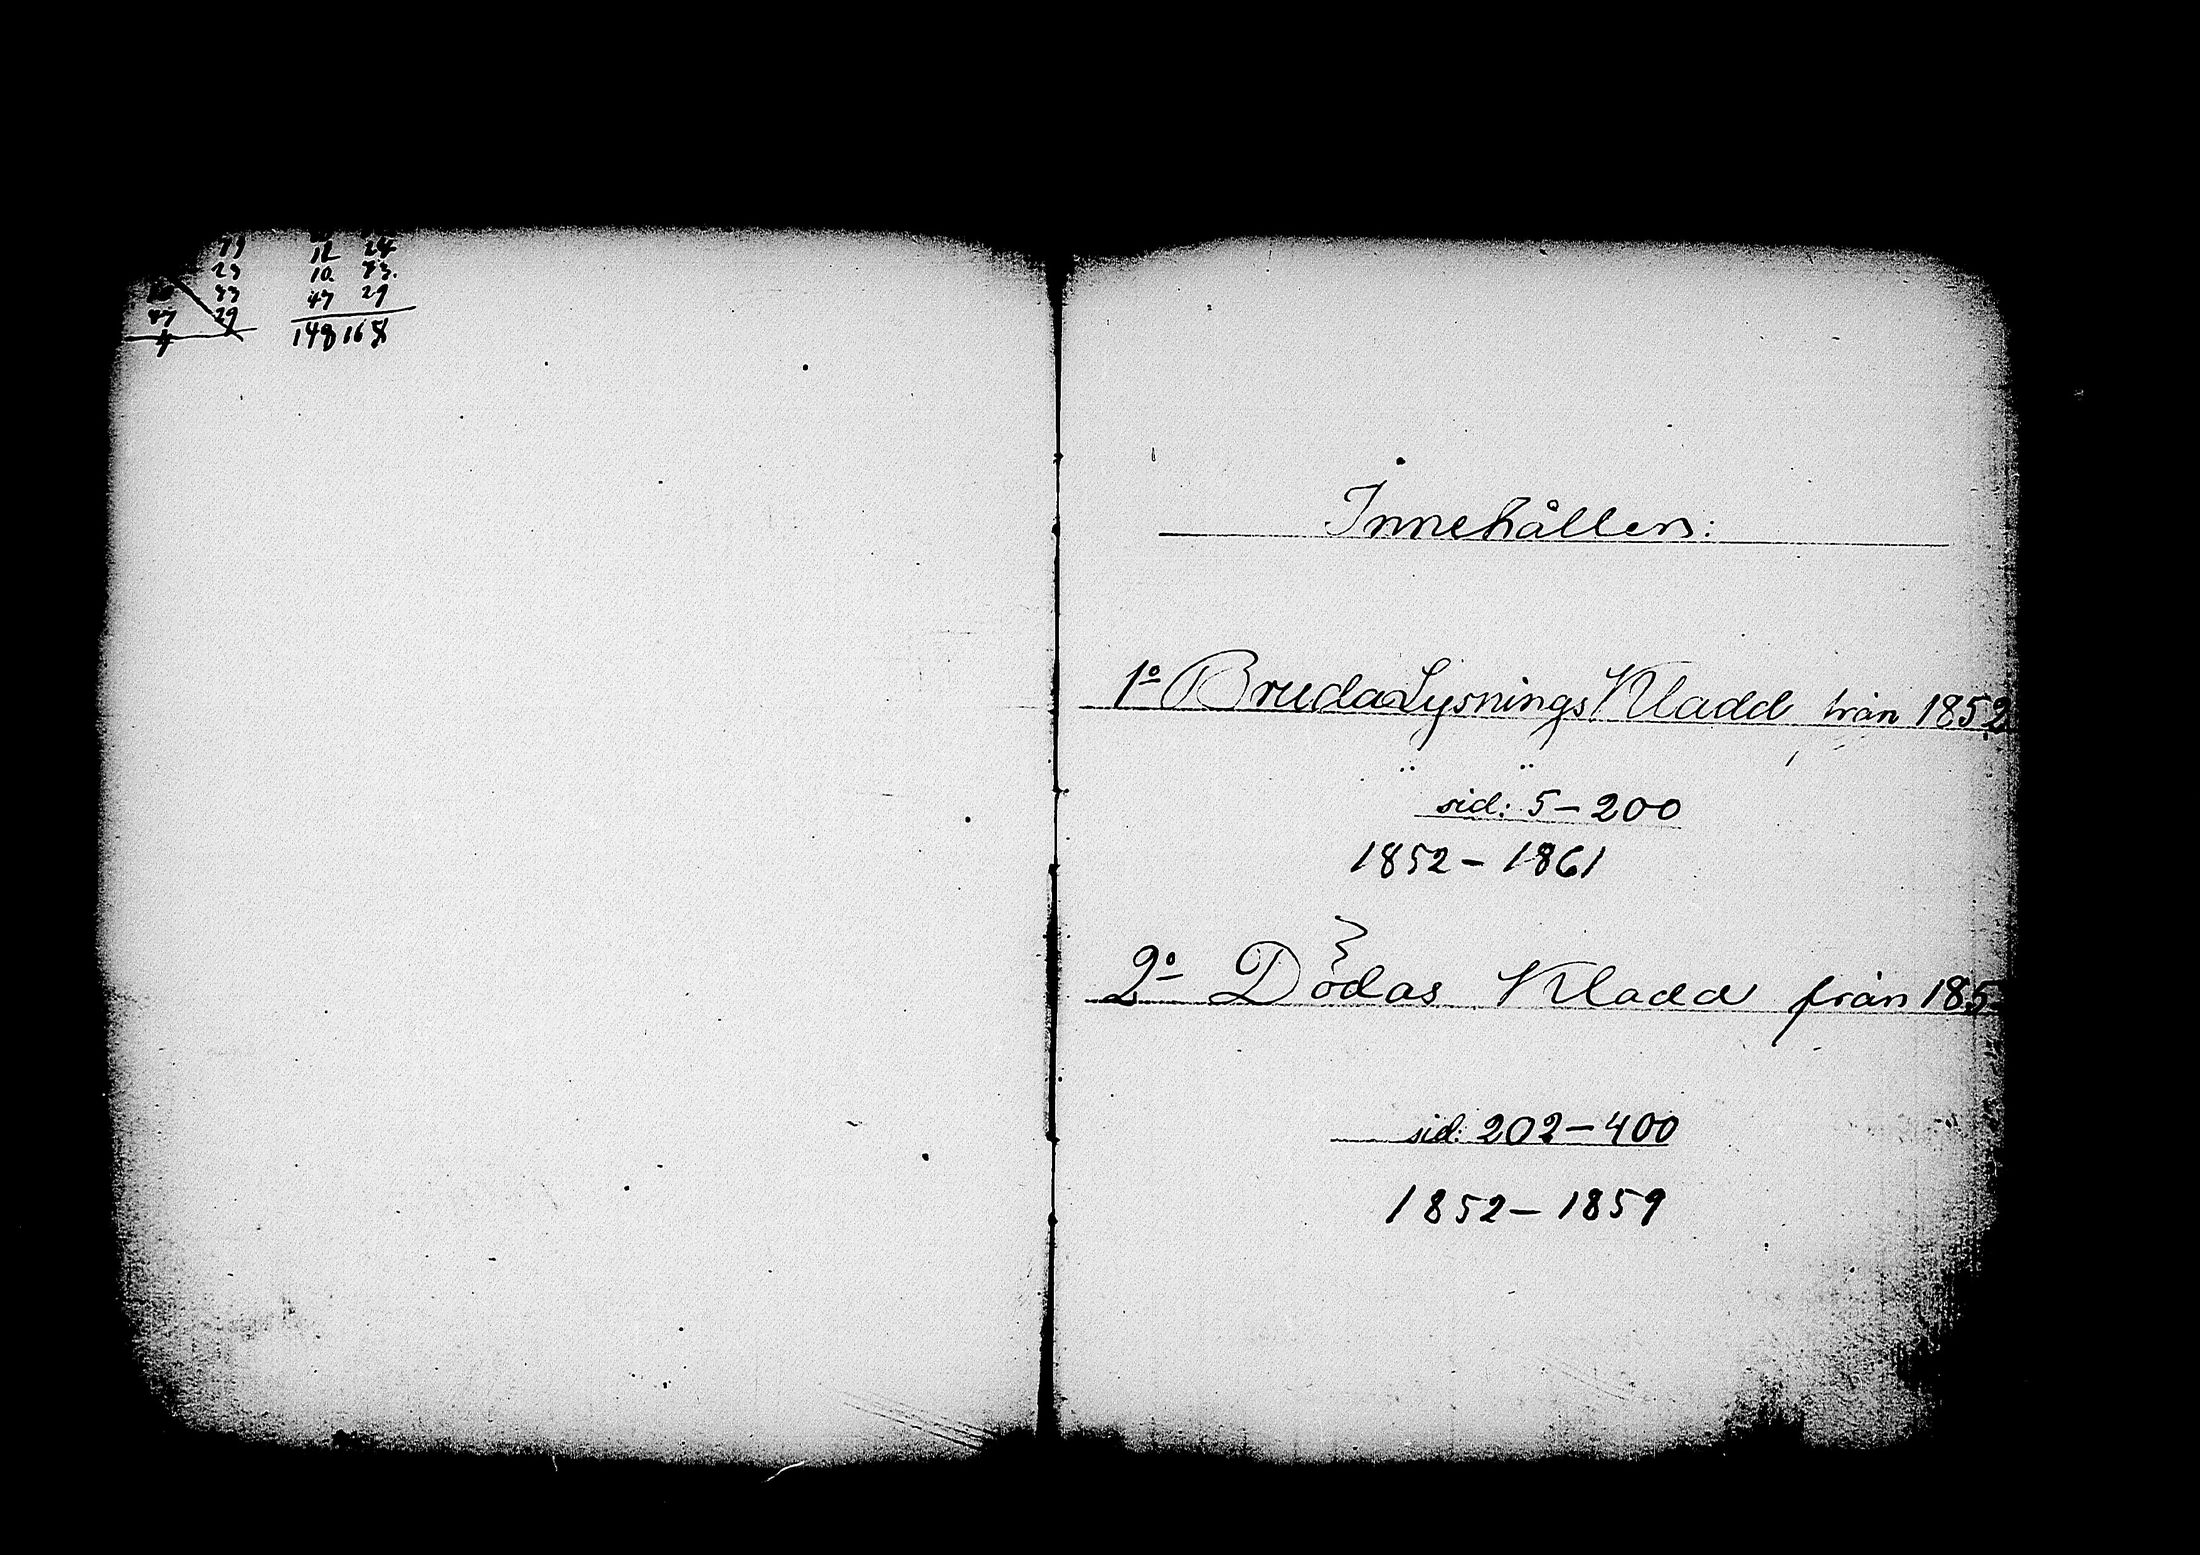 12 24
23 10. 73.
33 47 29
47 29
148 168
Innehåller:
1º BrudaLysnings Kladd från 1852
sid: 5–200
1852 – 1861
2º Dödas Kladd från 185
sid: 202–400
1852 – 1859